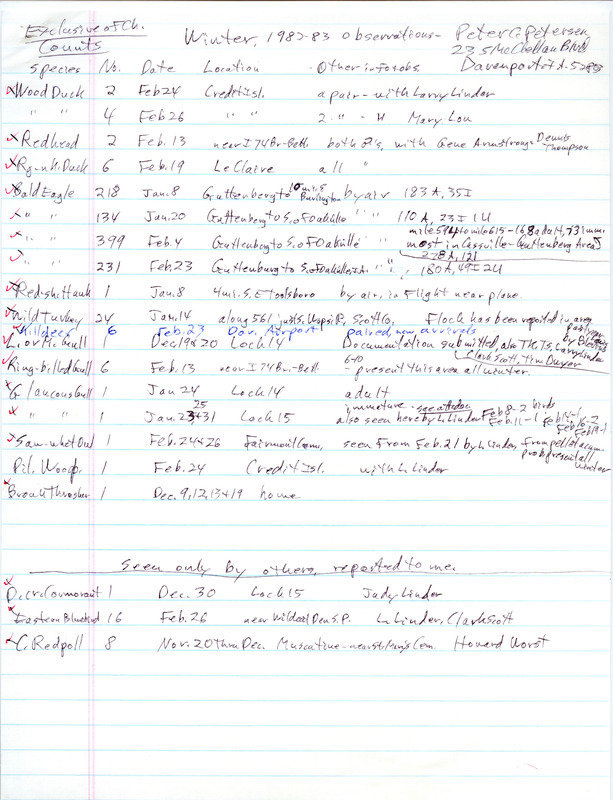 Exclusive of Ch. Counts
Winter, 1982-83 Observations - Peter C. Petersen
235 McClellan Blvd
Davenport, IA. 52803
Species No. Date Location Other info + obs
Wood Duck 2 Feb 24 Credit Isl. a pair - with Larry Linder
" " 4 Feb 26 " " 2 " - " Mary Lou
Redhead 2 Feb. 13 near I 74 Br.-Bett. both ♂'s, with Gene Armstrong - Dennis Thompson
Rg-nk. Duck 6 Feb. 19 Le Claire all "
Bald Eagle 218 Jan. 8 Guttenberg to 10 mi. S Burlington by air 183 A, 35 I
" " 134 Jan. 20 Guttenberg to S. of Oakville " " 110 A, 23 I 1 U
" " 399 Feb. 4 Guttenberg to S. of Oakville " " mile 594 to mile 615 - 168 adult, 73 imm. most in Cassville - Guttenberg Area
278 A, 121
" 231 Feb. 23 Guttenburg to S. of Oakville IA. " " 180 A, 49 I 2 U
Red-sh. Hawk 1 Jan. 8 4 mi. S. E Toolsboro by air, in flight near plane.
Wild Turkey 24 Jan. 14 along 561 just S. Wapsi R., Scott Co. Flock has been reported in area
Killdeer 6 Feb. 23 Dav. Airport paired, new arrivals
1 Dec 19 + 20 Lock 14 Documentation submitted, also Larry Linder
Clark Scott, Tim Dwyer
Ring-billed Gull 6 Feb. 13 near I 74 Br.-Bett. 6-10 - present this area all winter.
Glaucous Gull 1 Jan 24 Lock 14 adult
" " 1 Jan. 23 25 + 31 Lock 15 immature - see att. doc. also seen here by L. Linder Feb 8 - 2 birds Feb. 11 - 1 Feb 14 - 1 Feb 16 - 2 Feb 19 - 1
Saw-whet Owl 1 Feb. 24 + 26 Fairmount Cem. seen from Feb. 21 by L. Linder, from pellet accum. prob. present all winter
Pil. Woodp. 1 Feb. 24 Credit Isl. with L. Linder
Brown Thrasher 1 Dec. 9, 12, 13 + 19 home
Seen only by others, reported to me.
D. cr. Cormorant 1 Dec. 30 Lock 15 Jody Linder
Eastern Bluebird 16 Feb. 26 near Wildcat Den S.P. L. Linder, Clark Scott
C. Redpoll 8 Nov. 20 thru Dec. Muscatine - near Cem. Howard Worst